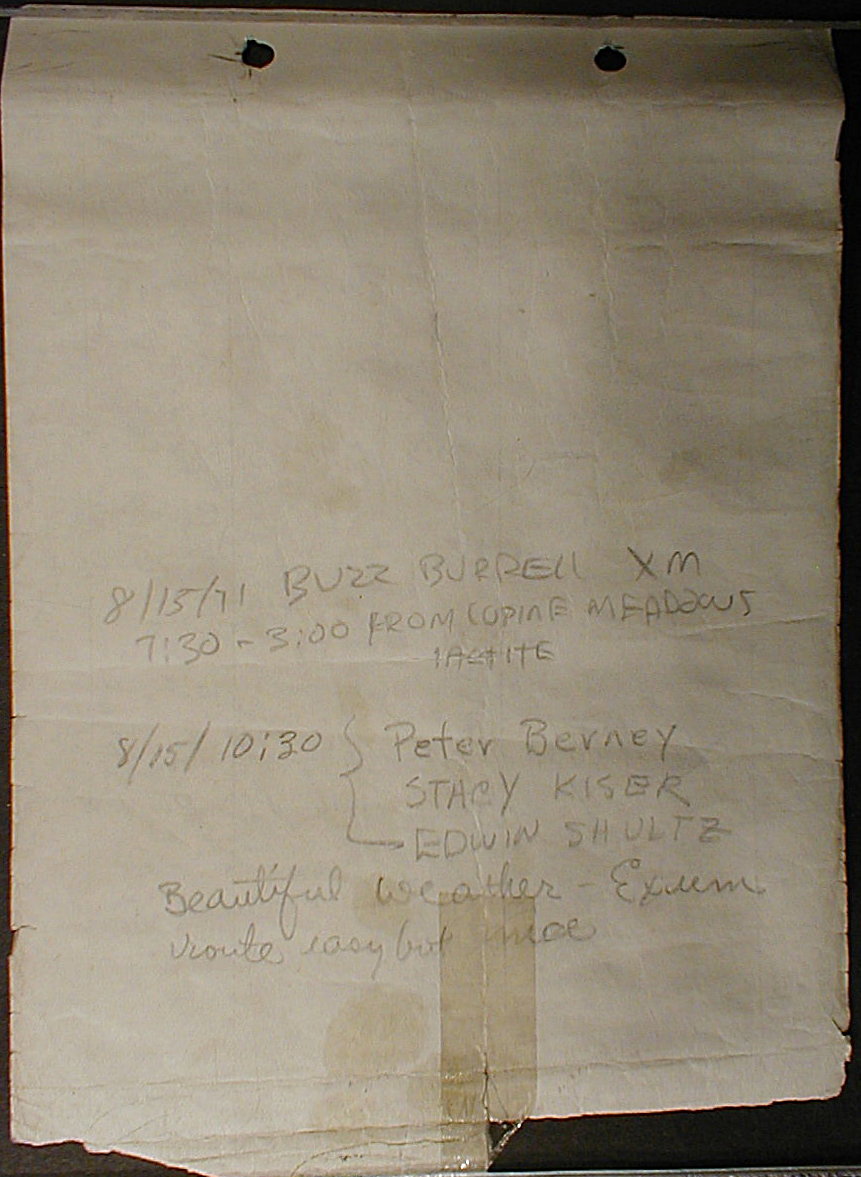 8/15/71 BUZZ BURRELL XM
7:30 - 3:00 FROM LUPINE MEADOWS
8/15/ 10:30 { Peter Berney
STACY KISER
EDWIN SHULTZ
Beautiful weather - Exum
route easy but nice